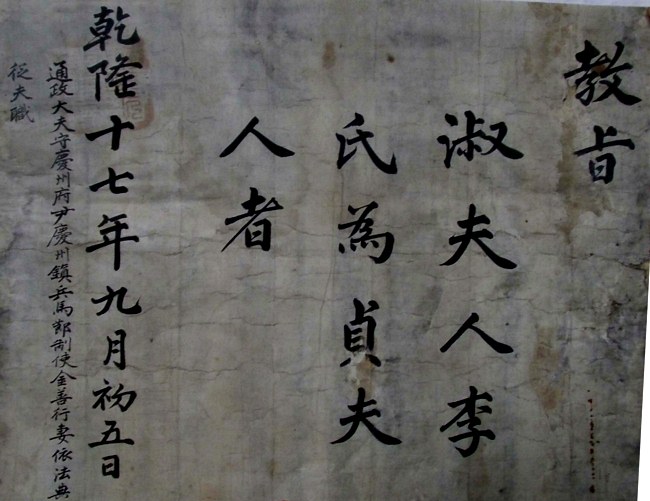 教旨
淑夫人李
氏為貞夫
人者
乾隆十七年九月初五日
通政大夫守慶州府尹慶州鎮兵馬節制使金善行妻依法典
従夫職